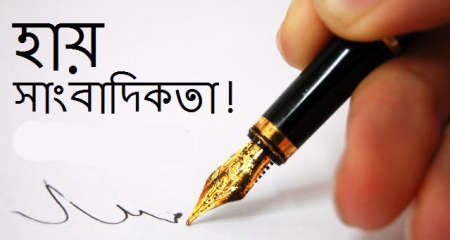 হায়
সাংবাদিকতা!